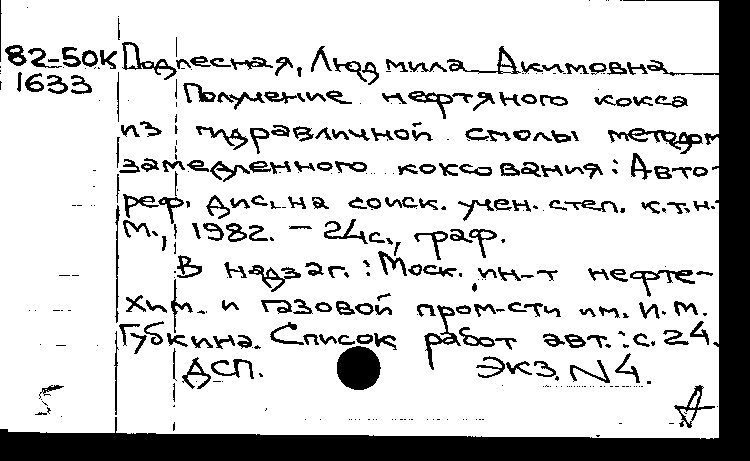 82-50К Подлесная, Людмила Акимовна
1633
Получение нефтяного кокса
из гидравличной смолы методом
замедленного коксования: Авто-
реф. дис. на соиск. учен. степ. к.т.н.-
М., 1982. - 24с., граф.
В надзаг.: Моск. ин-т нефте-
хим. и газовой пром-сти им. И.М.
Губкина. Список работ авт.: с. 24.
ДСП. Экз. N4.
5 А